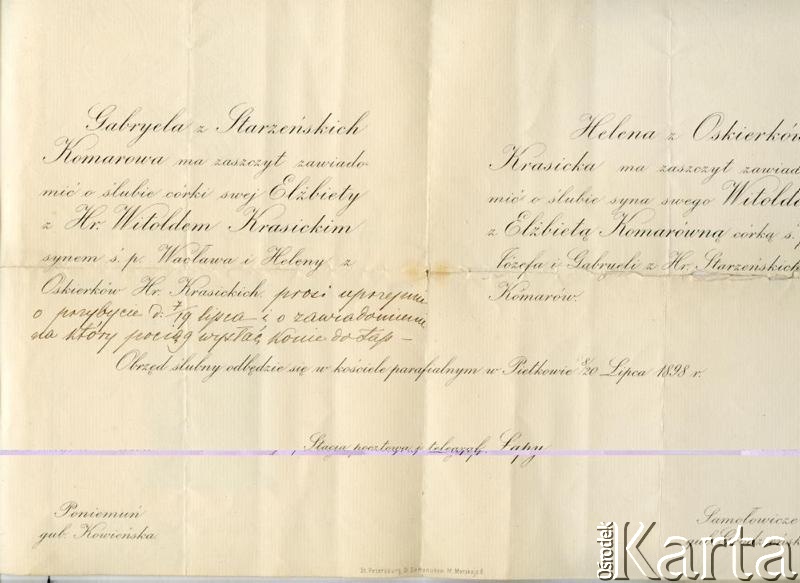 Gabryela z Starzeńskich
Komarowa ma zaszczyt zawiado-
mić o ślubie córki swej Elżbiety
z Hr. Witoldem Krasickim
synem ś. p. Wacława i Heleny z
Oskierków Hr. Krasickich. prosi uprzejmie
o przybycie d. 7/19 lipca i o zawiadomienie
na który pociąg wysłać konie do Łap –
Helena z Oskierków
Krasicka ma zaszczyt zawiad
mić o ślubie syna swego Witolda
z Elżbietą Komarówną córką ś.
Józefa i Gabryeli z Hr. Starzeńskich
Komarów.
Obrzęd ślubny odbędzie się w kościele parafialnym w Pietkowie 8/20 Lipca 1898 r.
Stacja pocztowa i telegraf. Łapy
Poniemuń
gub. Kowieńska.
Samołowicze
gub. Grodzieńsk
St. Petersburg. M. Morskaja 6.
Ośrodek
Karta